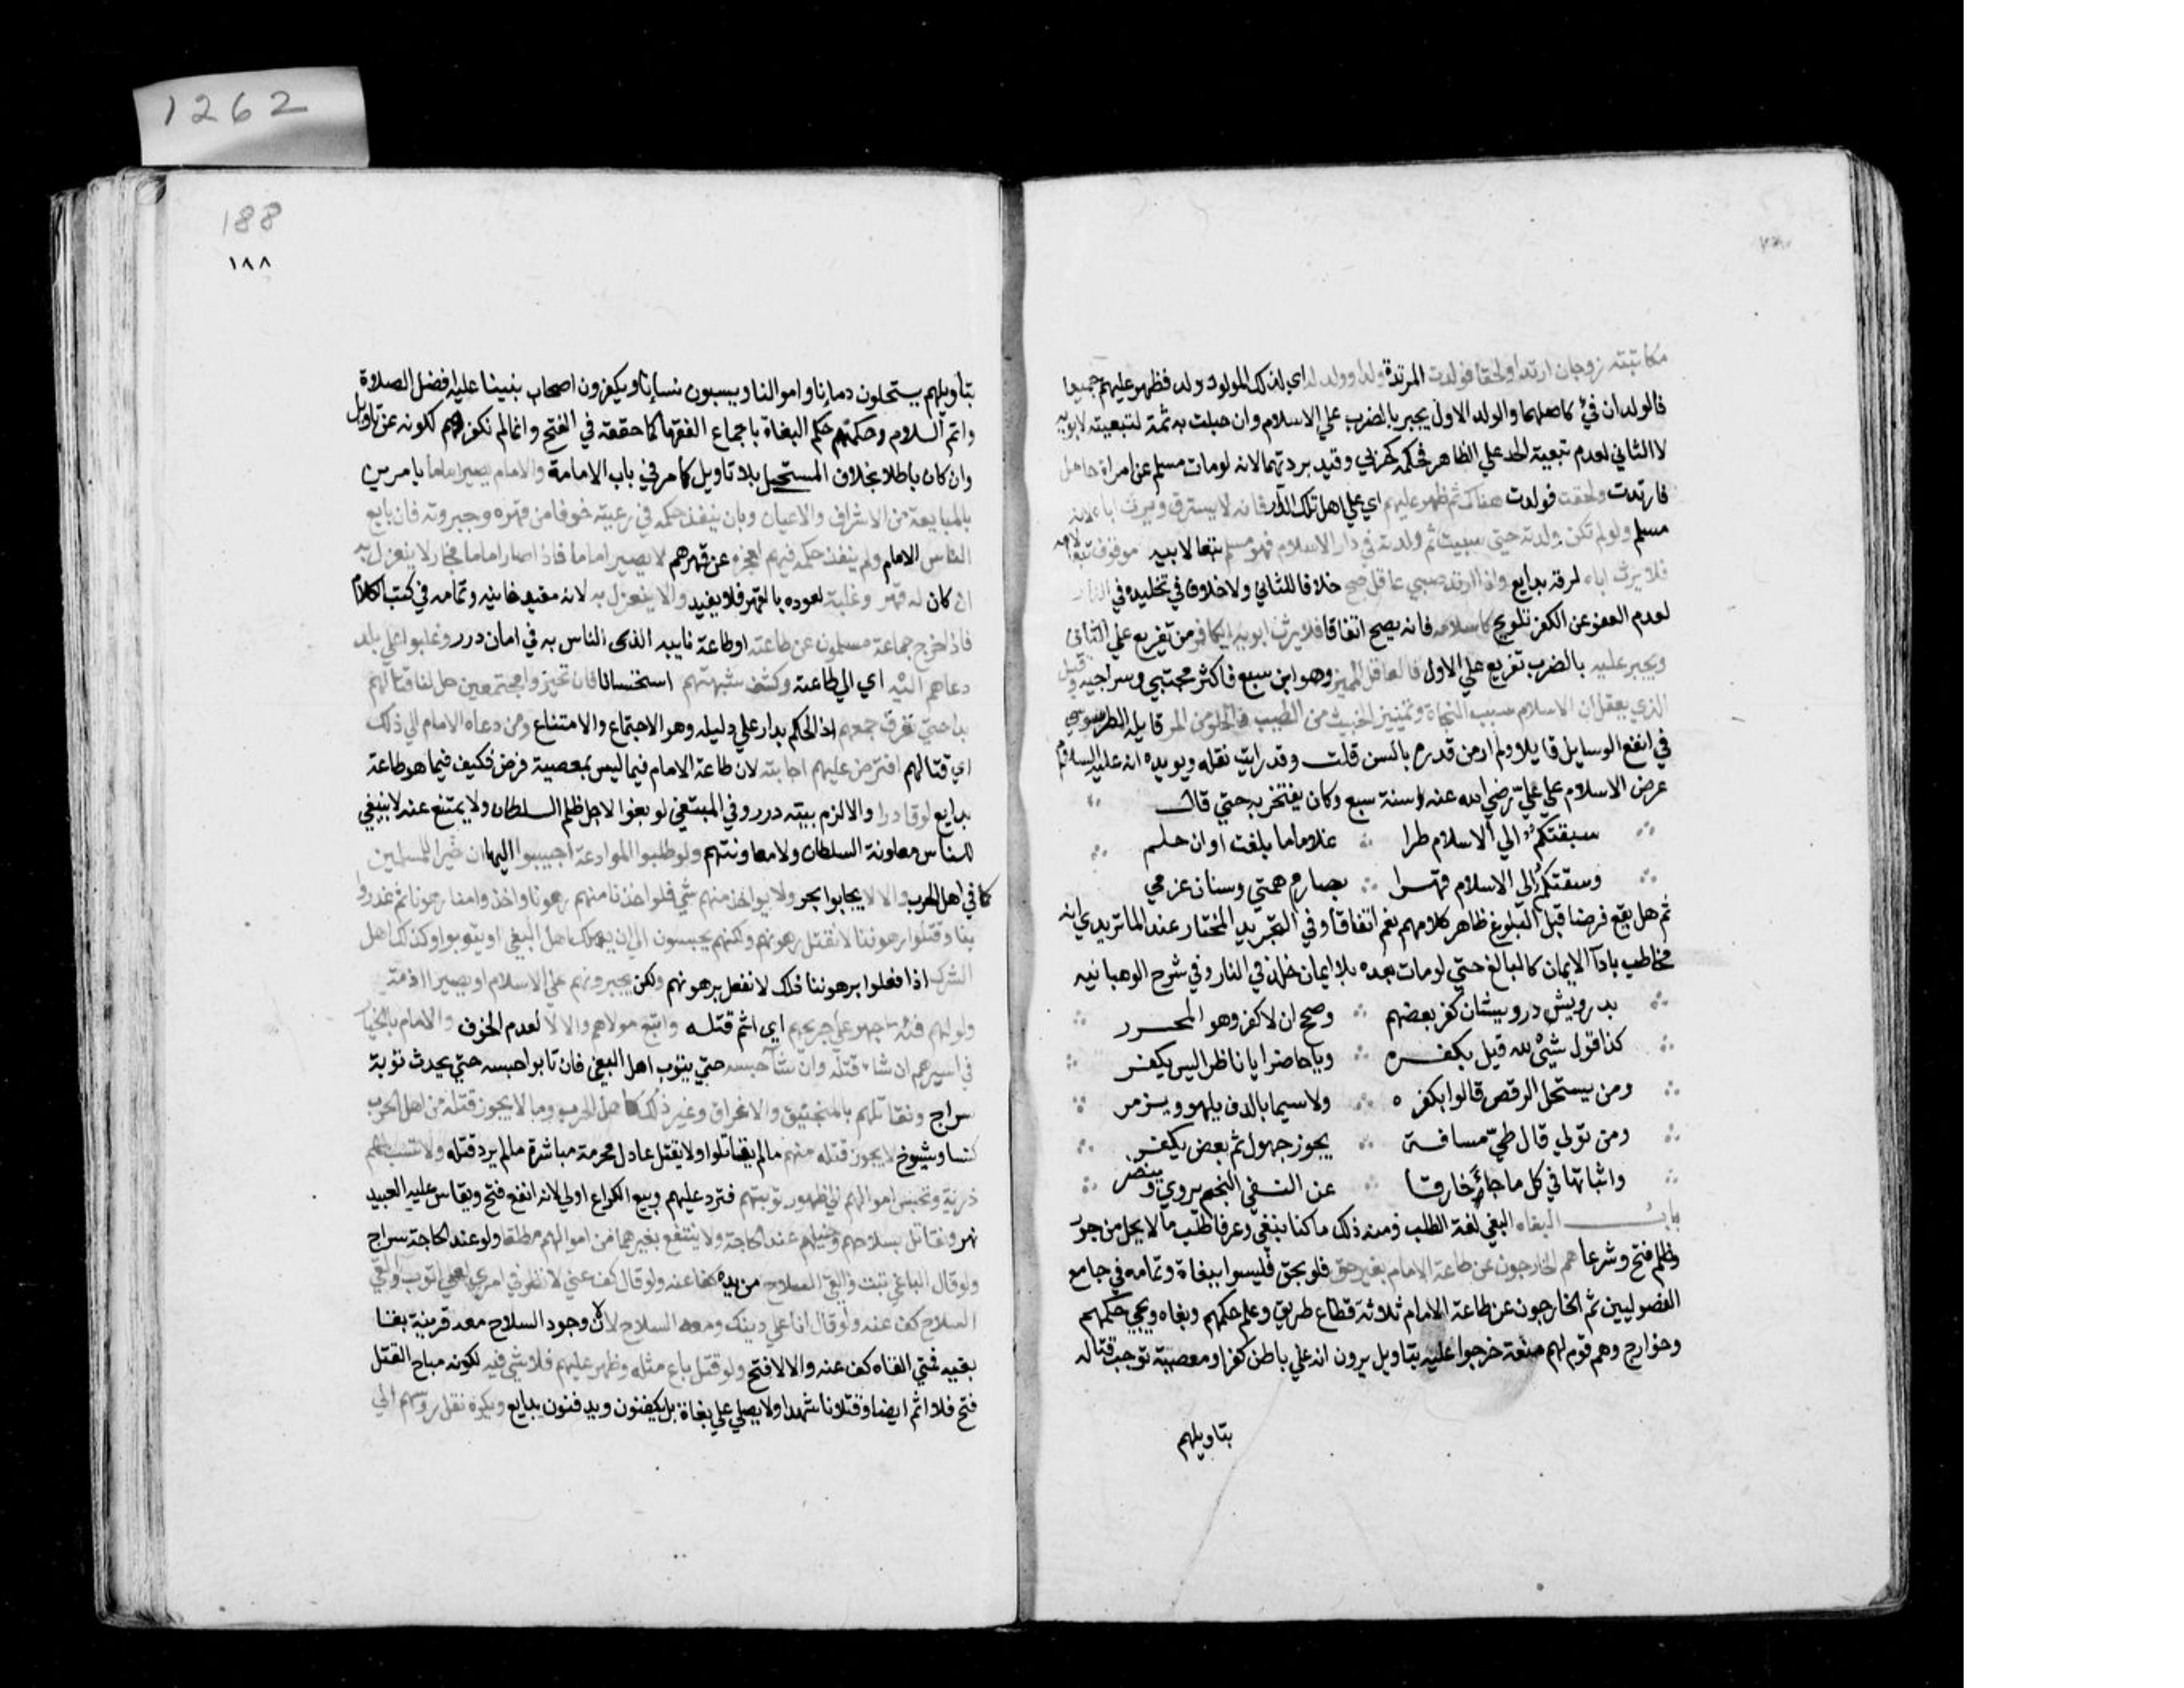 مكاتبته زوجان ارتدا ولحقا فولدت المرتدة ولدا وولد له اي لذلك المولود ولد فظهر عليهم جميعا
فالولدان فيء كاصلهما والولد الاول يجبر بالضرب علي الاسلام وان حبلت به ثمة لتبعيته لابويه
لا الثاني لعدم تبعية الجد علي الظاهر فحكمه كحربي وقيد بردتهما لانه لو مات مسلم عن امراة حامل
فارتدت ولحقت فولدت هناك ثم ظهر عليهم اي علي اهل تلك الدار فانه لا يسترق ويرث اباه لانه
مسلم ولو لم تكن ولدته حتي سبيت ثم ولدته في دار الاسلام فهو مسلم تبعا لابيه مرقوق تبعا لامه
فلا يرث اباه لرقه بدايع واذا ارتد صبي عاقل صح خلافا للثاني ولا خلاف في تخليده في النار
لعدم العفو عن الكفر تلويح كاسلامه فانه يصح اتفاقا فلا يرث ابويه الكافرين تفريع علي الثاني
ويجبر عليه بالضرب تفريع علي الاول فالعاقل المميز وهو ابن سبع فاكثر مجتبي وسراجيه وقيل
الذي يعقل ان الاسلام سبب النجاة وتمييز الخبيث من الطيب والحلو من المر قايله الطرسوسي
في انفع الوسايل قايلا ولم ار من قدره بالسن قلت وقد رايت نقله ويويده انه عليه السلام
عرض الاسلام علي علي رضي الله عنه وسنه سبع وكان يفتخر به حتي قال
سبقتكم الي الاسلام طرا غلاما ما بلغت اوان حلم
وسقتكم الي الاسلام قهرا بصارم همتي وسنان عزمي
ثم هل يقع فرضا قبل البلوغ ظاهر كلامهم نعم اتفاقا وفي التجريد المختار عند الماتريدي انه
مخاطب بادآ الايمان كالبالغ حتي لو مات بعده بلا ايمان خلد في النار وفي شرح الوهبانيه
بدرويش درويشان كفر بعضهم وصحح ان لا كفر وهو المحرر
كذا قول شيء لله قيل يكفره ويا حاضرا يا ناظر اليس يكفر
ومن يستحل الرقص قالوا بكفره ولا سيما بالدف يلهو ويزمر
ومن لولي قال طي مسافة يجوز جهول ثم بعض يكفر
واثباتها في كل ما جاء خارقا عن النسفي النجم يروي وينصر
باب البغاه البغي لغة الطلب ومنه ذلك ما كنا نبغي وعرفا طلب ما لا يحل من جور
وظلم فتح وشرعا هم الخارجون عن طاعة الامام بغير حق فلو بحق فليسوا ببغاة وتمامه في جامع
الفصوليين ثم الخارجون عن طاعة الامام ثلاثة قطاع طريق وعلم حكمهم وبغاه ويجي حكمهم
وخوارج وهم قوم لهم منعة خرجوا عليه بتاويل يرون انه علي باطل كفر او معصية توجب قتاله
بتاويلهم
1262
188
١٨٨
بتاويلهم يستحلون دمانا واموالنا ويسبون نسانا ويكفرون اصحاب نبينا عليه افضل الصلاة
واتم السلام وحكمهم حكم البغاة باجماع الفقها كما حققه في الفتح وانما لم نكفرهم لكونه عن تاويل
وان كان باطلا بخلاف المستحل بلا تاويل كما مر في باب الامامة والامام يصير اماما بامرين
بالمبايعة من الاشراف والاعيان وبان ينفذ حكمه في رعيته خوفا من قهره وجبروته فان بايع
الناس الامام ولم ينفذ حكمه فيهم لعجزه عن قهرهم لا يصير اماما فاذا صار اماما فجار لا ينعزل به
ان كان له قهر وغلبة لعوده بالقهر فلا يفيد والا ينعزل به لانه مفيد خانيه وتمامه في كتب الكلام
فاذا خرج جماعة مسلمون عن طاعته او طاعة نايبه الذي الناس به في امان درر وغلبوا علي بلد
دعاهم اليه اي الي طاعته وكشف شبهتهم استحسانا فان تحيزوا مجتمعين حل لنا قتالهم
بدا حتي نفرق جمعهم اذ الحكم يدار علي دليله وهو الاجتماع والامتناع ومن دعاه الامام الي ذلك
اي قتالهم افترض عليهم اجابته لان طاعة الامام فيما ليس بمعصية فرض فكيف فيما هو طاعة
بدايع لو قادرا والا لزم بيته درر وفي المبتغي لو بغوا لاجل ظلم السلطان ولا يمتنع عنه لا ينبغي
للناس معاونة السلطان ولا معاونتهم ولو طلبوا الموادعة اجيبوا اليها ان خيرا للمسلمين
كما في اهل الحرب والا لا يجابوا بحر ولا يواخذ منهم شي فلو اخذنا منهم رهونا واخذوا منا رهونا ثم غدروا
بنا وقتلوا رهوننا لا نقتل رهونهم ولكنهم يحبسون الي ان يهلك اهل البغي او يتوبوا وكذلك اهل
الشرك اذا فعلوا برهوننا ذلك لا نفعل برهونهم ولكن يجبرونهم علي الاسلام او يصيروا ذمة
ولو لهم فئة اجهز علي جريحهم اي اتم قتله واتبع موليهم والا لا لعدم الخوف والامام بالخيار
في اسيرهم ان شاء قتله وان شا حبسه حتي يتوب اهل البغي فان تابوا حبسه حتي يحدث توبة
سراج ونقاتلهم بالمنجنيق والاغراق وغير ذلك كاهل الحرب وما لا يجوز قتله من اهل الحرب
كنسا وشيوخ لا يجوز قتله منهم ما لم يقاتلوا ولا يقتل عادل محرمه مباشرة ما لم يرد قتله ولا تسب لهم
ذرية وتحبس اموالهم الي ظهور توبتهم فترد عليهم وبيع الكراع اولي لانه انفع فتح ويقاس عليه العبيد
نهر ونقاتل بسلاحهم وخيلهم عند الحاجة ولا ينتفع بغيرهما من اموالهم مطلقا ولو عند الحاجة سراج
ولو قال الباغي تبت والقي السلاح من يده كف عنه ولو قال كف عني لانظر في امري لعلي اتوب والقي
السلاح كف عنه ولو قال انا علي دينك ومعه السلاح لا لان وجود السلاح معه قرينة بقا
بغيه فمتي القاه كف عنه والا لا فتح ولو قتل باغ مثله وظهر عليهم فلا شي فيه لكونه مباح القتل
فتح فلا اثم ايضا وقتلانا شهدا ولا يصلي علي بغاة بل يكفنون ويدفنون بدايع ويكره نقل روسهم الي